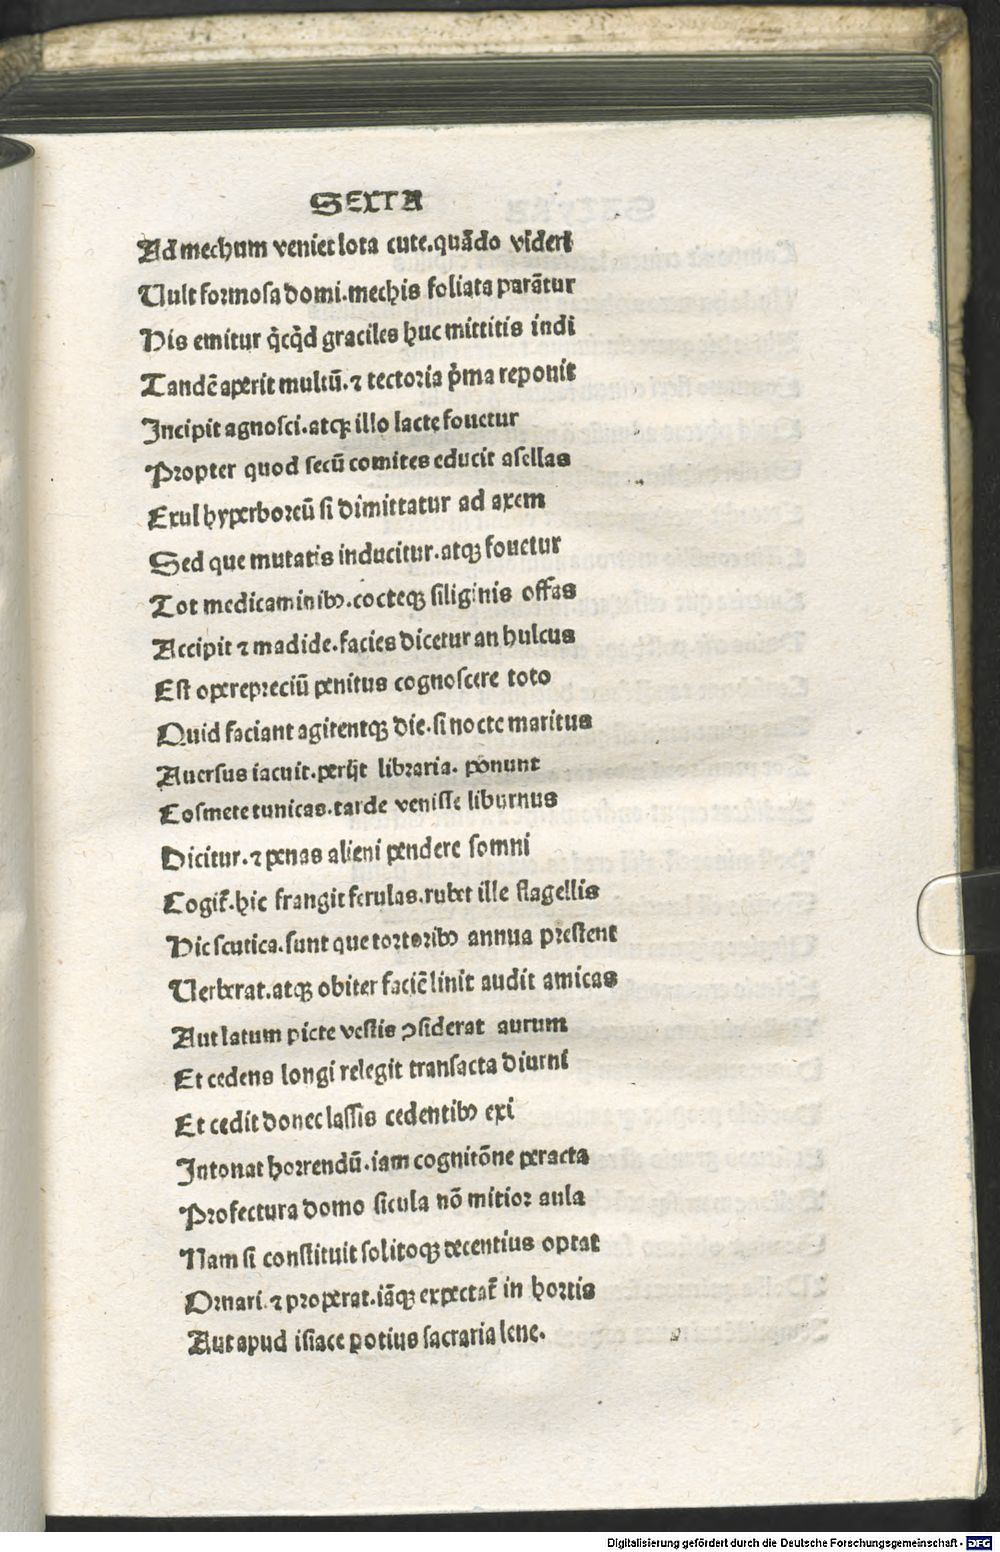 SEXTA
Ad mechum veniet lota cute.quãdo videri
Uult formosa domi.mechis foliata parãtur
His emitur q̄cq̄d graciles huc mittitis indi
Tandē aperit multū.⁊ tectoria p̄ma reponit
Incipit agnosci.atqꝫ illo lacte fouetur
Propter quod secū comites educit asellas
Exul hyperboreū si dimittatur ad axem
Sed que mutatis inducitur.atqꝫ fouetur
Tot medicaminibꝰ.cocteqꝫ siliginis offas
Accipit ⁊ madide.facies dicetur an hulcus
Est operepreciū penitus cognoscere toto
Quid faciant agitentqꝫ die.si nocte maritus
Auersus iacuit.perijt libraria. ponunt
Cosmete tunicas.tarde venisse liburnus
Dicitur.⁊ penas alieni pendere somni
Cogit̄.hic frangit ferulas.rubet ille flagellis
Hic scutica.sunt que tortoribꝰ annua prestent
Uerberat.atqꝫ obiter faciē linit audit amicas
Aut latum picte vestis ꝯsiderat aurum
Et cedens longi relegit transacta diurni
Et cedit donec lassis cedentibꝰ exi
Intonat horrendū.iam cognitōne peracta
Profectura domo sicula nō mitior aula
Nam si constituit solitoqꝫ decentius optat
Ornari.⁊ properat.iāqꝫ expectat̄ in hortis
Aut apud isiace potius sacraria lene.
Digitalisierung gefördert durch die Deutsche Forschungsgemeinschaft - DFG